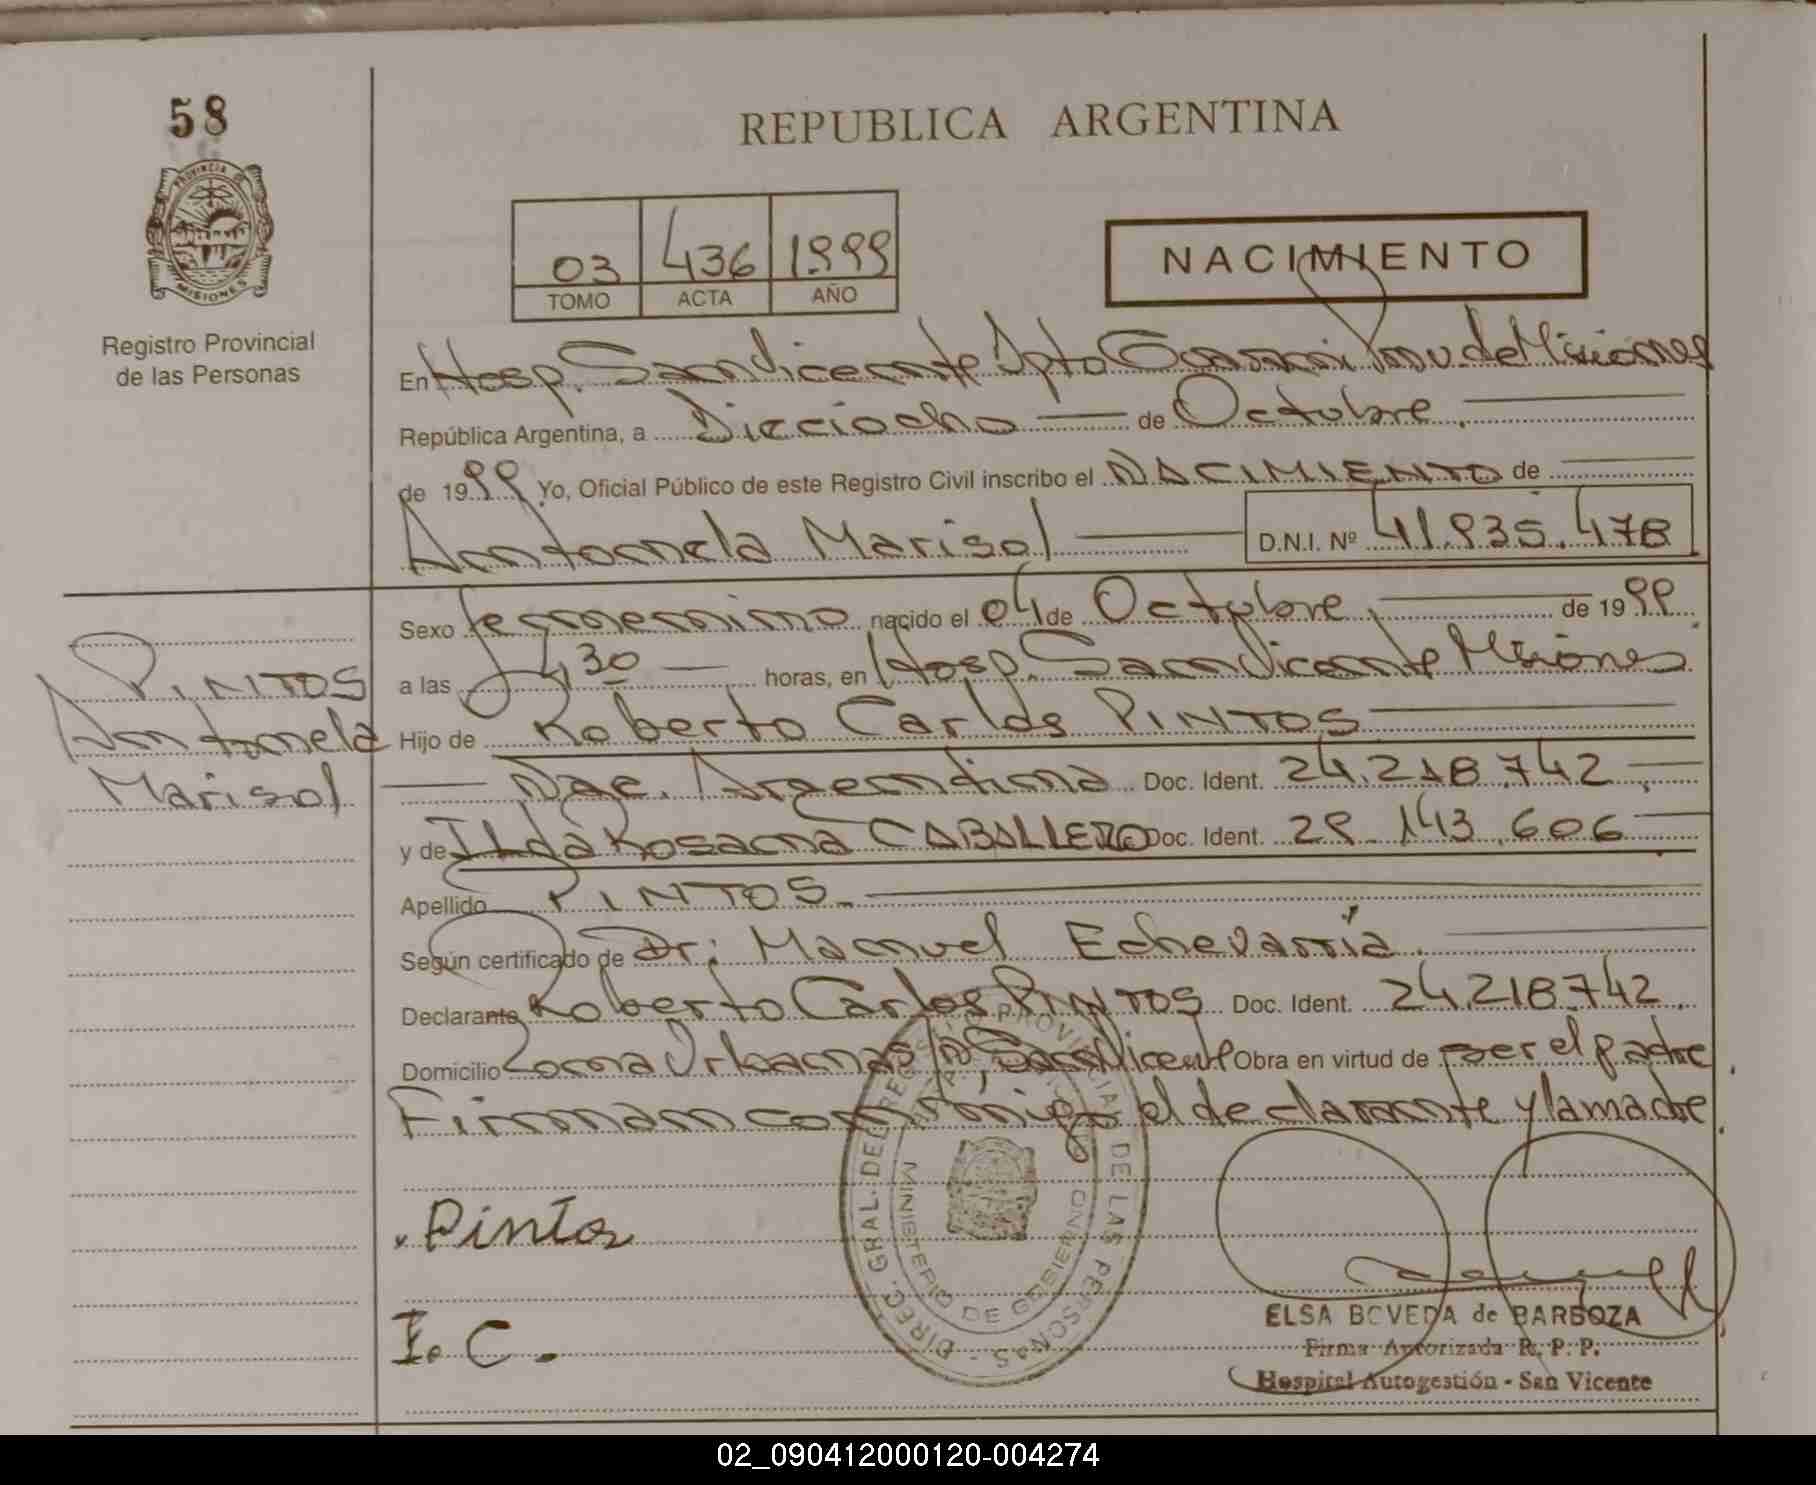 58
PROVINCIA DE
MISIONES
Registro Provincial
de las Personas
REPUBLICA ARGENTINA
03 436 1999
TOMO ACTA AÑO
NACIMIENTO
En Hosp. San Vicente Dpto Guarani Prov. de Misiones
República Argentina, a Dieciocho de Octubre
de 1999 Yo, Oficial Público de este Registro Civil inscribo el NACIMIENTO de
Antonela Marisol D.N.I. Nº 41.935.478
Sexo femenino nacido el 04 de Octubre de 1999
a las 4,30 horas, en Hosp. San Vicente Misiones
PINTOS
Antonela
Marisol
Hijo de Roberto Carlos PINTOS
Nac. Argentina Doc. Ident. 24.218.742
y de Ilda Rosana CABALLERO Doc. Ident. 29.143.606
Apellido PINTOS
Según certificado de Dr: Manuel Echevarría
Declarante Roberto Carlos PINTOS Doc. Ident. 24.218.742
Domicilio Zona Urbana s/n, San Vicente Obra en virtud de ser el padre
Firman conmigo el declarante y la madre
DIREC. GRAL. DEL REGISTRO PROVINCIAL DE LAS PERSONAS
MINISTERIO DE GOBIERNO
Pintos
I. C.
ELSA BOVEDA de BARBOZA
Firma Autorizada R. P. P.
Hospital Autogestión - San Vicente
02_090412000120-004274